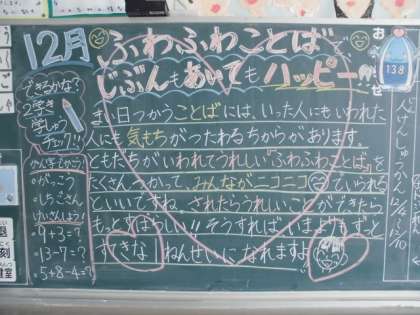 12月
ふわふわことばで
じぶんもあいてもハッピー
まい日つかうことばには、いった人にもいわれた
人にも気もちがつたわるちからがあります。
ともだちがいわれてうれしい"ふわふわことば"を
たくさんつかって、みんながニコニコ
していられる
といいですね。されたらうれしいことができたら
もっとすばらしい!!そうすれば、いまよりもずっと
すてきな ねんせいになれますよ
できるかな?
2学き
学しゅう
チェック!!
かん字でかこう!
がっこう
しちごさん
けいさんしよう!
9+3=?
13-7=?
5+8-4=?
人けんしゅうかん 12/4〜12/10
138